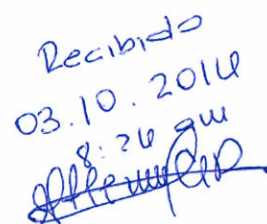 Recibido
03.10.2014
8:26 am